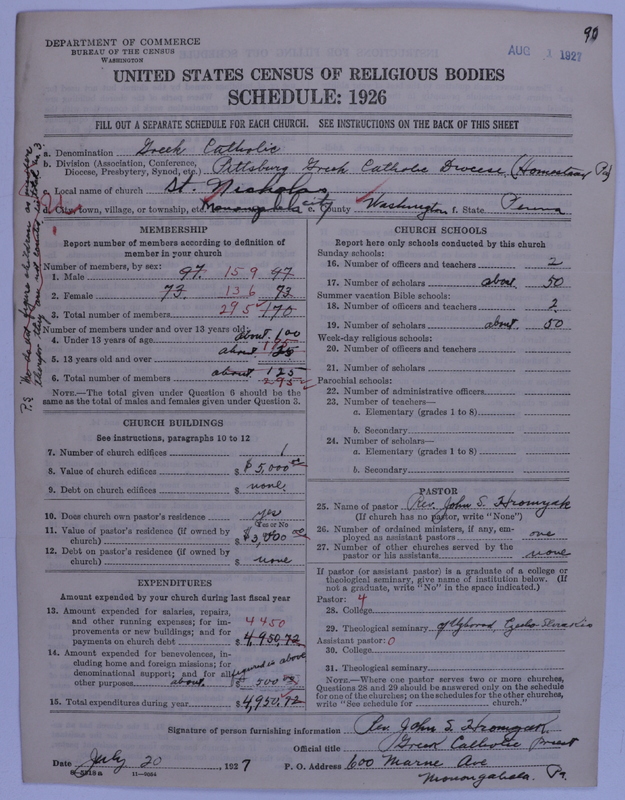 90
DEPARTMENT OF COMMERCE
BUREAU OF THE CENSUS
WASHINGTON
AUG 1 1927
UNITED STATES CENSUS OF RELIGIOUS BODIES
SCHEDULE: 1926
FILL OUT A SEPARATE SCHEDULE FOR EACH CHURCH. SEE INSTRUCTIONS ON THE BACK OF THIS SHEET
a. Denomination Greek Catholic
b. Division (Association, Conference, Diocese, Presbytery, Synod, etc.) Pittsburg Greek Catholic Diocese (Homestead Pa)
c. Local name of church St. Nicholas
d. City, town, village, or township, etc. Monongahela city e. County Washington f. State Penna
MEMBERSHIP
Report number of members according to definition of
member in your church
Number of members, by sex:
1. Male 97. 159 97
2. Female 73. 136 73
3. Total number of members 295 170
Number of members under and over 13 years old:
4. Under 13 years of age about 100
5. 13 years old and over about 125
6. Total number of members about 125
295
NOTE.—The total given under Question 6 should be the
same as the total of males and females given under Question 3.
CHURCH BUILDINGS
See instructions, paragraphs 10 to 12
7. Number of church edifices 1
8. Value of church edifices $ 5,000 00
9. Debt on church edifices $ none.
10. Does church own pastor's residence yes
(Yes or No)
11. Value of pastor's residence (if owned by
church) $ 3,000 00
12. Debt on pastor's residence (if owned by
church) $ none
EXPENDITURES
Amount expended by your church during last fiscal year
13. Amount expended for salaries, repairs,
and other running expenses; for im-
provements or new buildings; and for
payments on church debt $ 4,950,72
4450
14. Amount expended for benevolences, in-
cluding home and foreign missions; for
denominational support; and for all
other purposes about $ 500
figured in above
15. Total expenditures during year $ 4,950.72
CHURCH SCHOOLS
Report here only schools conducted by this church
Sunday schools:
16. Number of officers and teachers 2
17. Number of scholars about 50
Summer vacation Bible schools:
18. Number of officers and teachers 2
19. Number of scholars about 50
Week-day religious schools:
20. Number of officers and teachers
21. Number of scholars
Parochial schools:
22. Number of administrative officers
23. Number of teachers—
a. Elementary (grades 1 to 8)
b. Secondary
24. Number of scholars—
a. Elementary (grades 1 to 8)
b. Secondary
PASTOR
25. Name of pastor Rev. John S. Hromyak
(If church has no pastor, write "None")
26. Number of ordained ministers, if any, em-
ployed as assistant pastors one
27. Number of other churches served by the
pastor or his assistants none
If pastor (or assistant pastor) is a graduate of a college or
theological seminary, give name of institution below. (If
not a graduate, write "No" in the space indicated.)
Pastor: 4
28. College
29. Theological seminary of Uzhorod, Czecho-Slovakia
Assistant pastor: 0
30. College
31. Theological seminary
NOTE.—Where one pastor serves two or more churches,
Questions 28 and 29 should be answered only on the schedule
for one of the churches; on the schedules for the other churches,
write "See schedule for church."
Signature of person furnishing information Rev. John S. Hromyak
Official title Greek Catholic priest
Date July 20, 1927 P. O. Address 600 Marne Ave
Monongahela. Pa.
8-5318 a 11-9084